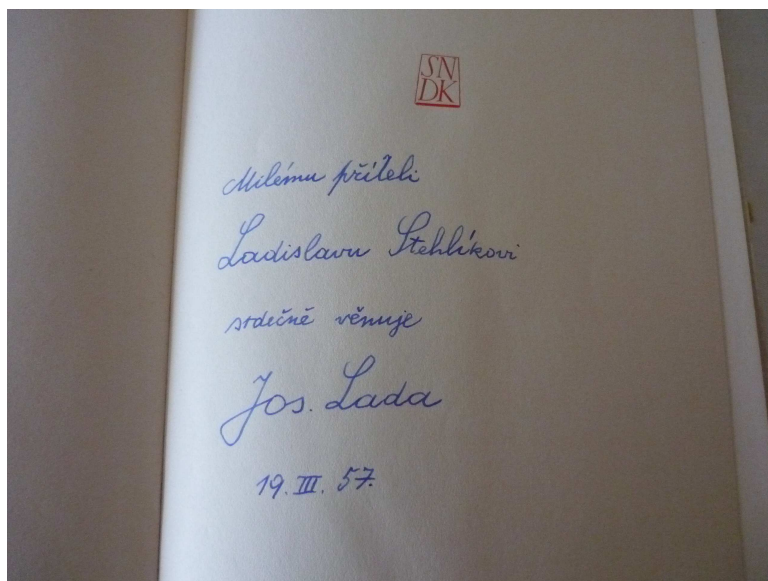 SN
DK
Milému příteli
Ladislavu Stehlíkovi
srdečně věnuje
Jos. Lada
19. III. 57.